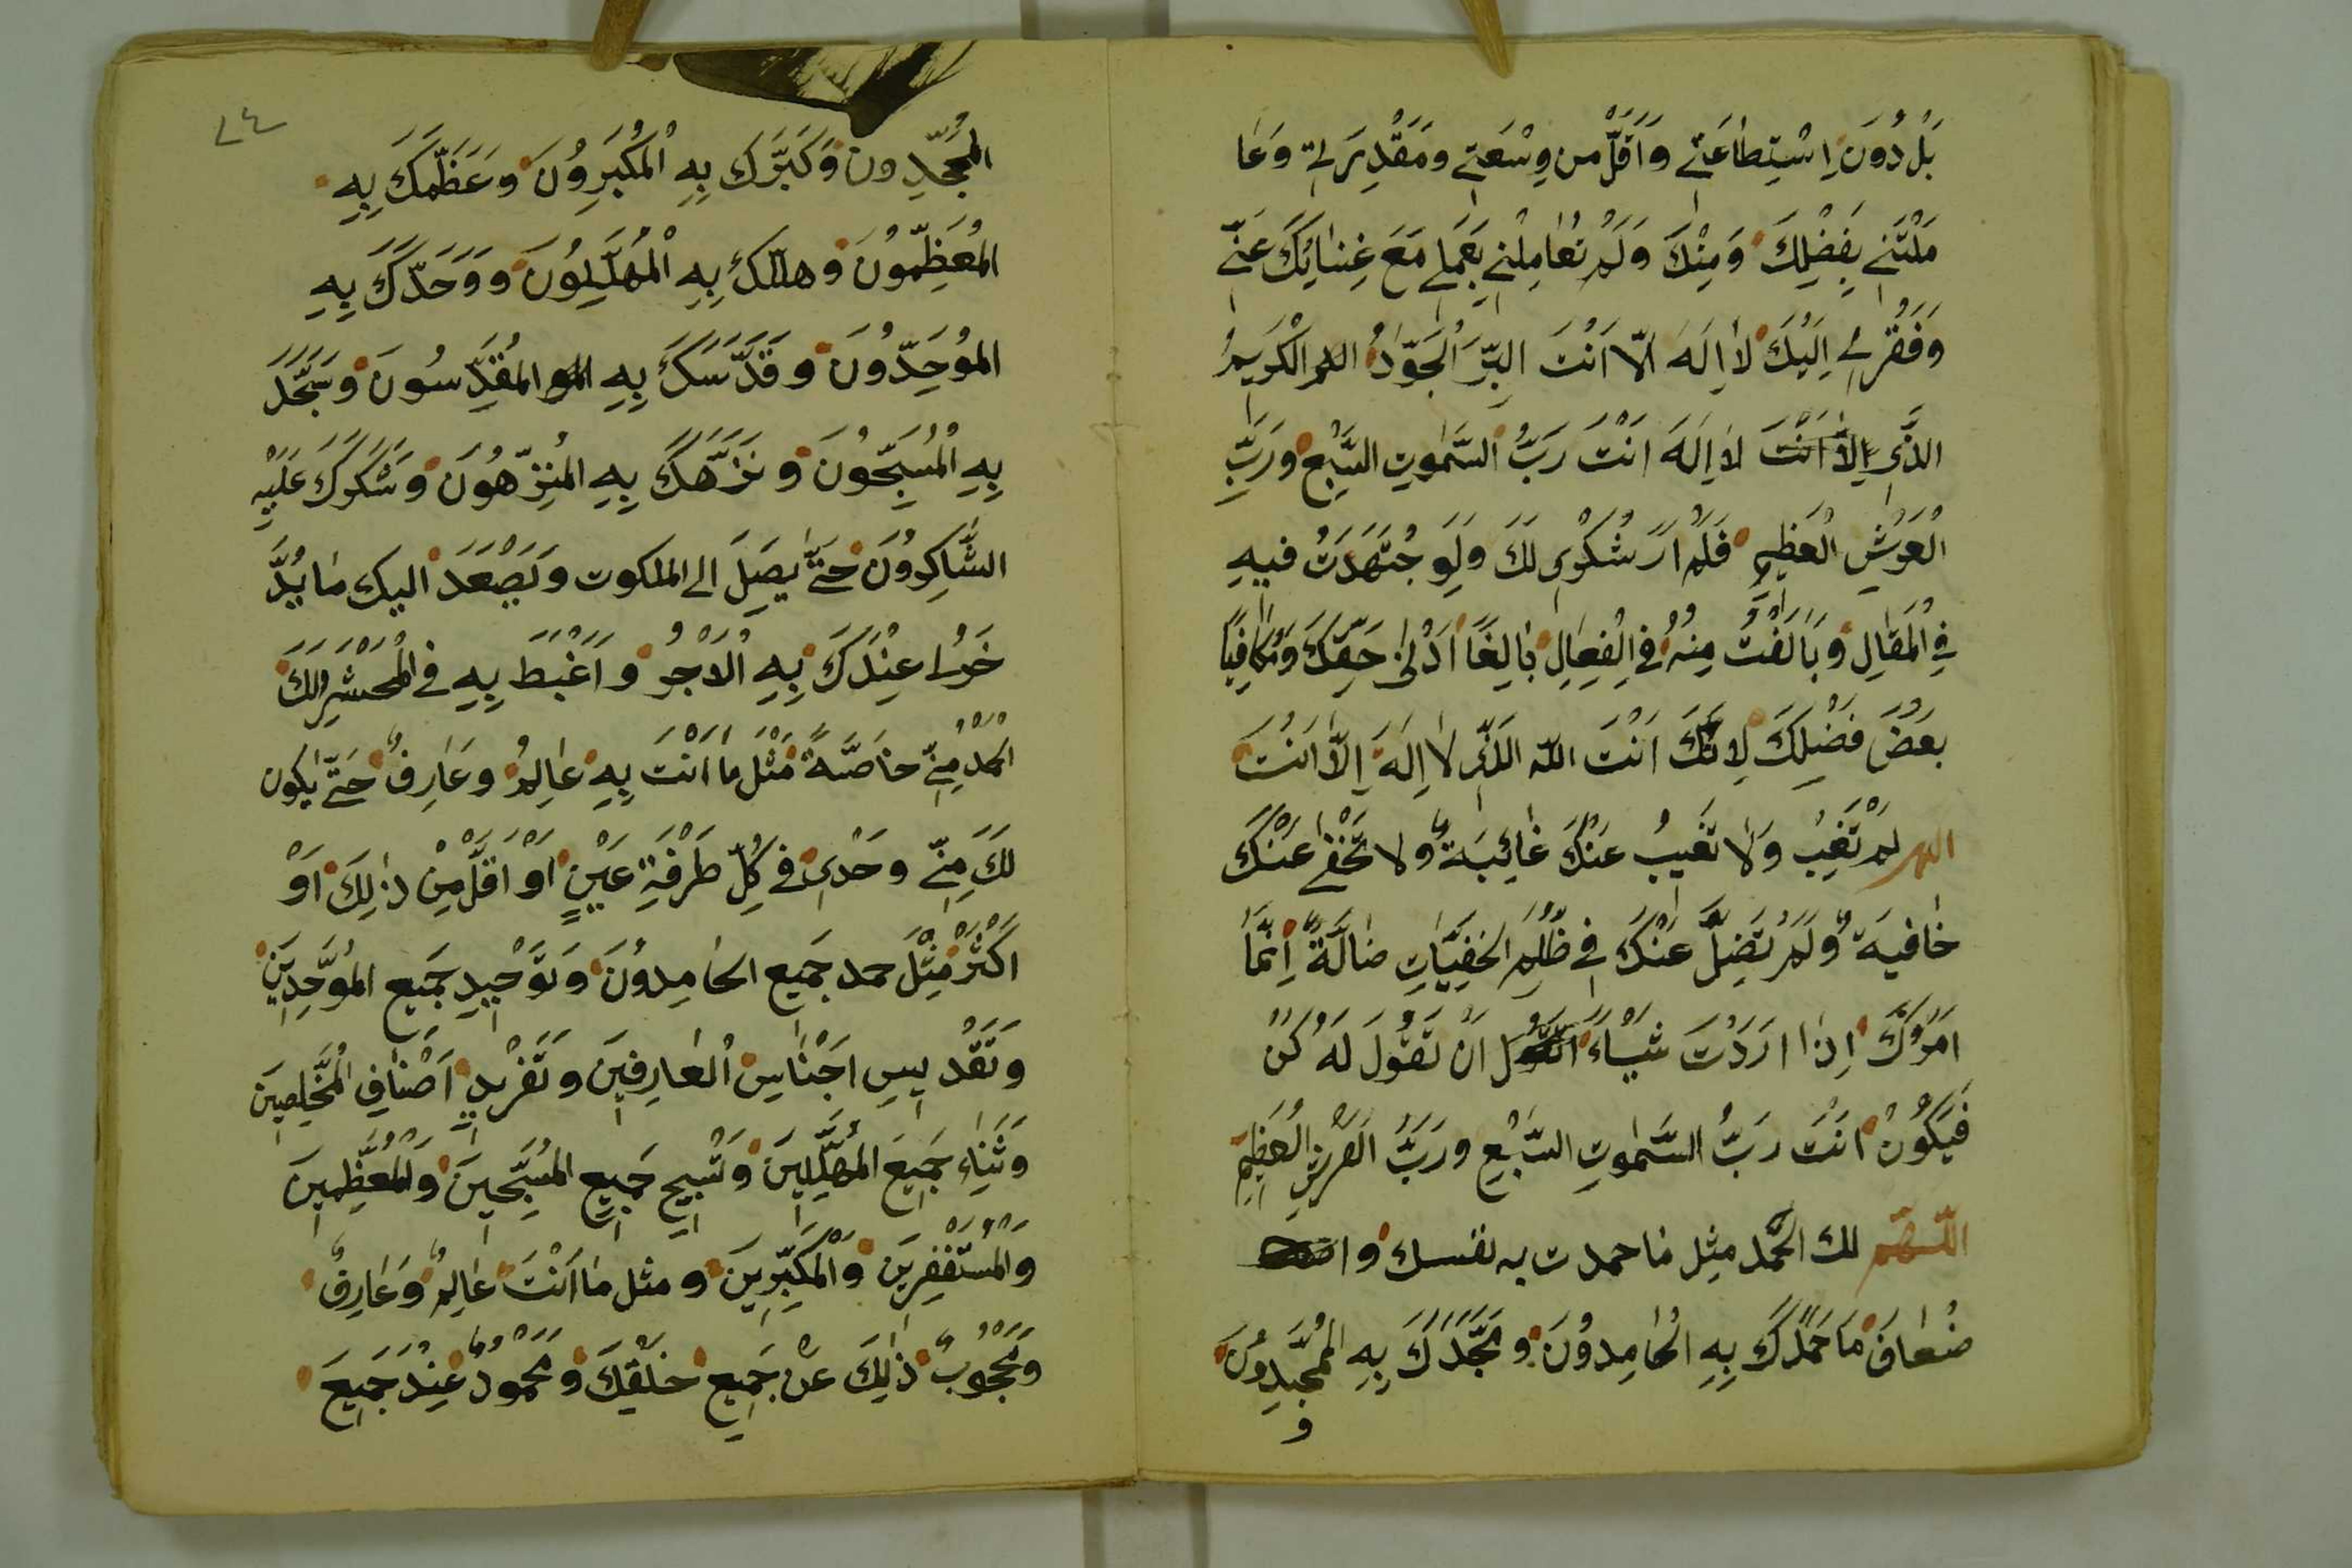 بَلْ دُوَنَ اِسْتِطاعَتي وَاَقَلَّ من وِسْعَتي ومَقْدِرَتي وَعَا
مَلْتَنے بِفَضْلِكَ وَمِنْكَ وَلَمْ تُعٰامِلْني بِعَمَلے مَعَ غِنٰائِكَ عَنّے
وَفَقْرے اِلَيْكَ لاٰ اِلَهَ الّا اَنْتَ البِرَّ الْجَوّادُ اللهم الْكَرِيمُ
الذَّى اِلاَّ اَنْتَ لاٰ اِلَهَ اَنْتَ رَبُّ السَّمٰوٰتِ السَّبْعِ وَرَبِّ
الْعَرْشِ الْعَظِيمِ فَلَمْ اَرَ شُكْرى لَكَ وَلَوِ جْتَهَدَتُ فيهِ
فِي الْمَقَالِ وَبَالَغْتُ مِنْهُ فِي الْفِعَالِ بٰالِغًا اَدْنٰى حَقِّكَ وَمُكافِيًا
بَعْضَ فَضْلِكَ لِاَنَّكَ اَنْتَ اللّه الَذّى لاٰ اِلَهَ اِلاّ اَنْتَ
اللهم لَمْ تَغِبْ وَلاٰ تَغيبُ عَنْكَ غٰائِبَةٌ وَلا تَخْفٰى عَنْكَ
خٰافيَةٌ وَلَمْ تَضِلَّ عَنْكَ في ظُلَمِ الخَفِيَّاتِ ضٰالَّةٌ اِنَّمٰا
اَمْرُكَ اِذٰا اَرَدْتَ شَيْاءً اَنْ تَقُولَ لَهُ كُنْ
فَيَكُونُ اَنْتَ رَبُّ السَّمٰوٰتِ السَّبْعِ ورَبُّ العَرْشِ الْعَظِيمِ
اللّهمّ لك الحَمْد مِثل مٰا حمدت به نفسك وا
ضْعافَ مٰا حَمَدَكَ بِهِ الْحٰامِدوُنَ وَمَجَّدَكَ بِهِ الْمُمَجِّدوُنَ
و
٧٤
المُمَجِّدِونَ وَكَبَّرَكَ بِهِ الْمُكَبِّرِوُنَ وَعَظَّمَكَ بِهِ
المُعَظِّموُنَ وَهلّلَكَ بِهِ الْمُهَلِّلِوُنَ وَوَحَدَّكَ بِهِ
الموُحَدِّوُنَ وَقَدَّسَكَ بِهِ المُقَدِّسُونَ وَسَبَّحَكَ
بِهِ الْمُسَبِّحُونَ وَنَزَّهَكَ بِهِ المُنَزِّهُونَ وَشَكَرَكَ عَلَيْهِ
الشّٰاكِروُنَ حَتّٰى يَصِلَ الى الملكوت وَيَصْعَدَ اليك مٰا يُدَّ
خَرُ عِنْدَكَ بِهِ الْاَجْرُ وَاَغْبَطَ بِهِ في الْمَحْشَرِ لَكَ
الحَمْدُ مِنّي خاصَّةً مَثْلَ مٰا اَنْتَ بِهِ عٰالِمٌ وعَارِفٌ حَتّٰى يكون
لَكَ مِنّے وحَدى في كُلِّ طَرْفَةِ عَيْنٍ اَوْ اَقَلَّ مِنْ ذٰلِكَ اَوْ
اَكْثَرَ مِثْلَ حمد جَمَيعِ الحٰامِدوُنَ وَتَوْحيدِ جَميع المُوَحِّدِينَ
وَتَقْديسِ اَجْنٰاسِ الْعٰارِفينَ وَتَفْريدِ اَصْنٰافِ الْمُخْلِصينَ
وَثَنٰاءِ جَميعِ الْمُهَلِّلِينَ وَتَسْبيحِ جَميعِ المُسَبِّحينَ وَالْمُعَظِّمينَ
وَالْمُسْتَغْفِرينَ وَالْمُكَبِّرينَ وَ مثل مٰا اَنْتَ عٰالِمٌ وَعٰارِفٌ
وَمَحْجُوبٌ ذٰلِكَ عَنْ جَميعِ خَلْقِكَ وَمَحْمُودٌ عِنْدَ جَميعَ